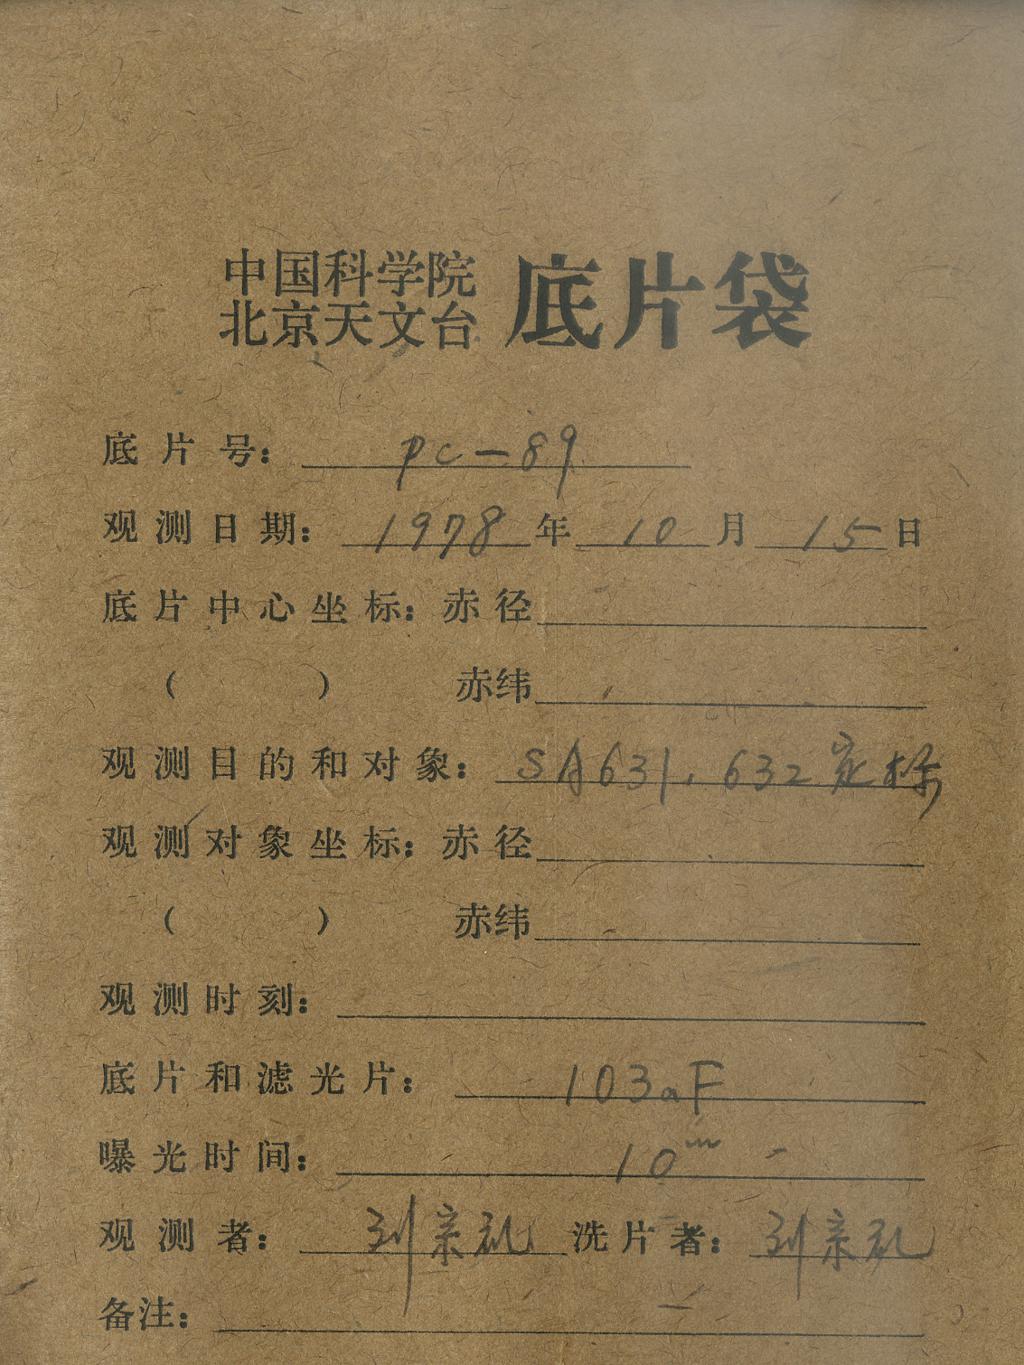 中国科学院
北京天文台
底片袋
底片号： pc-89
观测日期： 1978 年 10 月 15 日
底片中心坐标：赤径
（ ） 赤纬
观测目的和对象： SA631, 632定标
观测对象坐标：赤径
（ ） 赤纬
观测时刻：
底片和滤光片： 103aF
曝光时间： 10m
观测者： 刘亲礼 洗片者： 刘亲礼
备注：